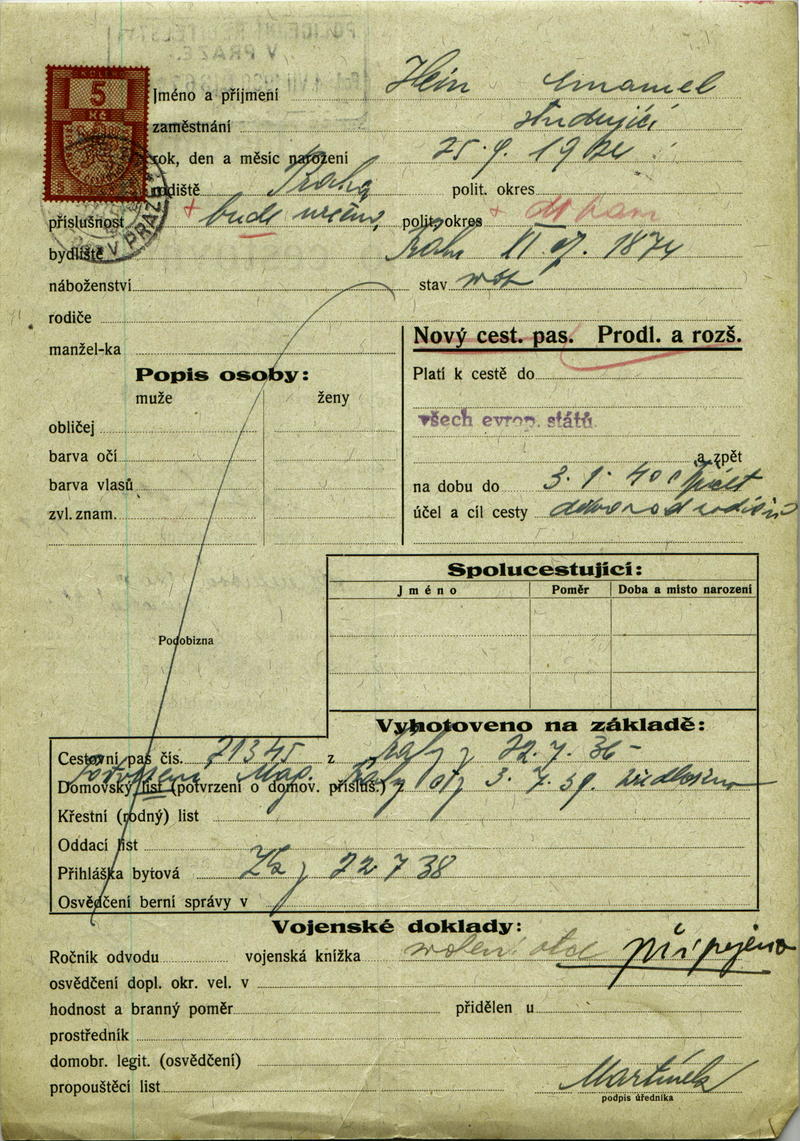 KOLEK
5
Kč
Jméno a příjmení Hein Emanuel
zaměstnání studující
rok, den a měsíc narození 25. 9. 1924
rodiště Praha polit. okres
příslušnost + bude určena, polit. okres +
bydliště Praha II. 1874
náboženství stav
rodiče
manžel-ka
Nový cest. pas. Prodl. a rozš.
Popis osoby:
muže ženy
Platí k cestě do
obličej
všech evrop. států
barva očí
a zpět
barva vlasů
na dobu do 3. 1. 40
zvl. znam.
účel a cíl cesty
Spolucestující:
Jméno Poměr Doba a místo narození
Podobizna
Vyhotoveno na základě:
Cestovní pas čís. 71345 z Prahy 22. 7. 36
Domovský list (potvrzení o domov. přísluš.) Potvrzení Mag. Prahy 3. 7. 39.
Křestní (rodný) list
Oddací list
Přihláška bytová 22 7 38
Osvědčení berní správy v
Vojenské doklady:
Ročník odvodu vojenská knížka svolení otce připojeno
osvědčení dopl. okr. vel. v
hodnost a branný poměr přidělen u
prostředník
domobr. legit. (osvědčení)
propouštěcí list Martínek
podpis úředníka